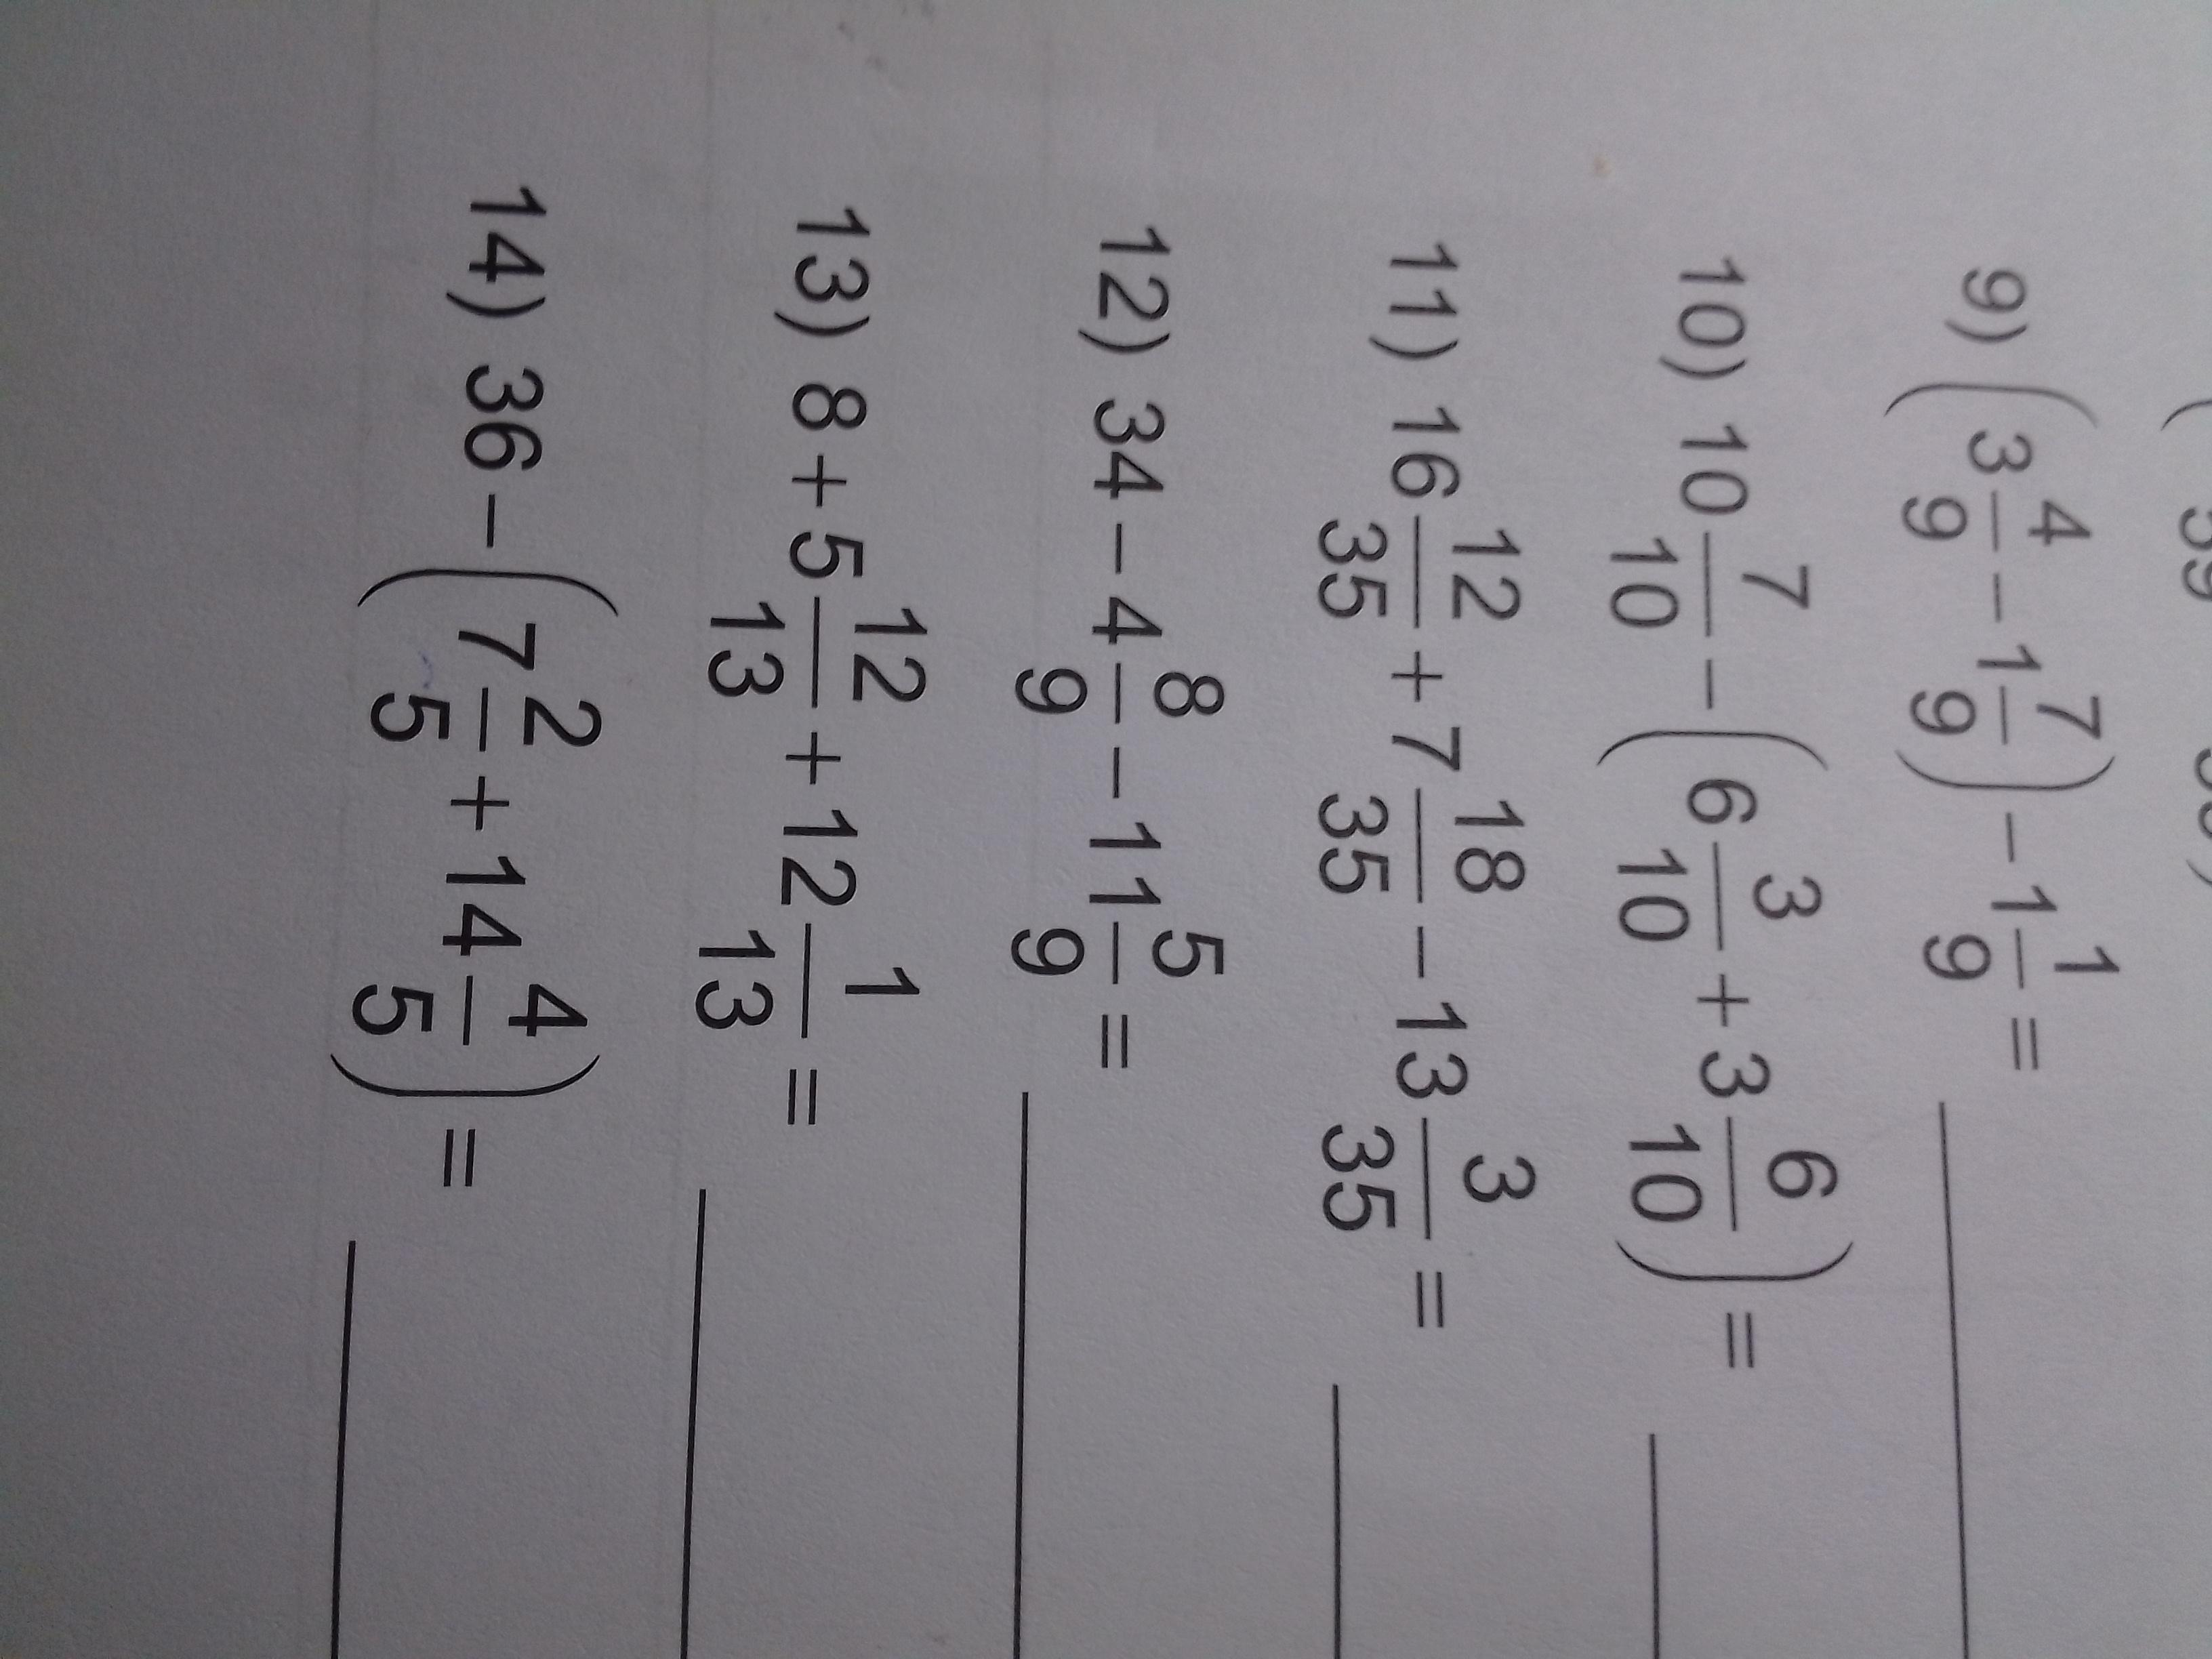 9) (3 4/9 − 1 7/9) − 1 1/9 =
10) 10 7/10 − (6 3/10 + 3 6/10) =
11) 16 12/35 + 7 18/35 − 13 3/35 =
12) 34 − 4 8/9 − 11 5/9 =
13) 8 + 5 12/13 + 12 1/13 =
14) 36 − (7 2/5 + 14 4/5) =